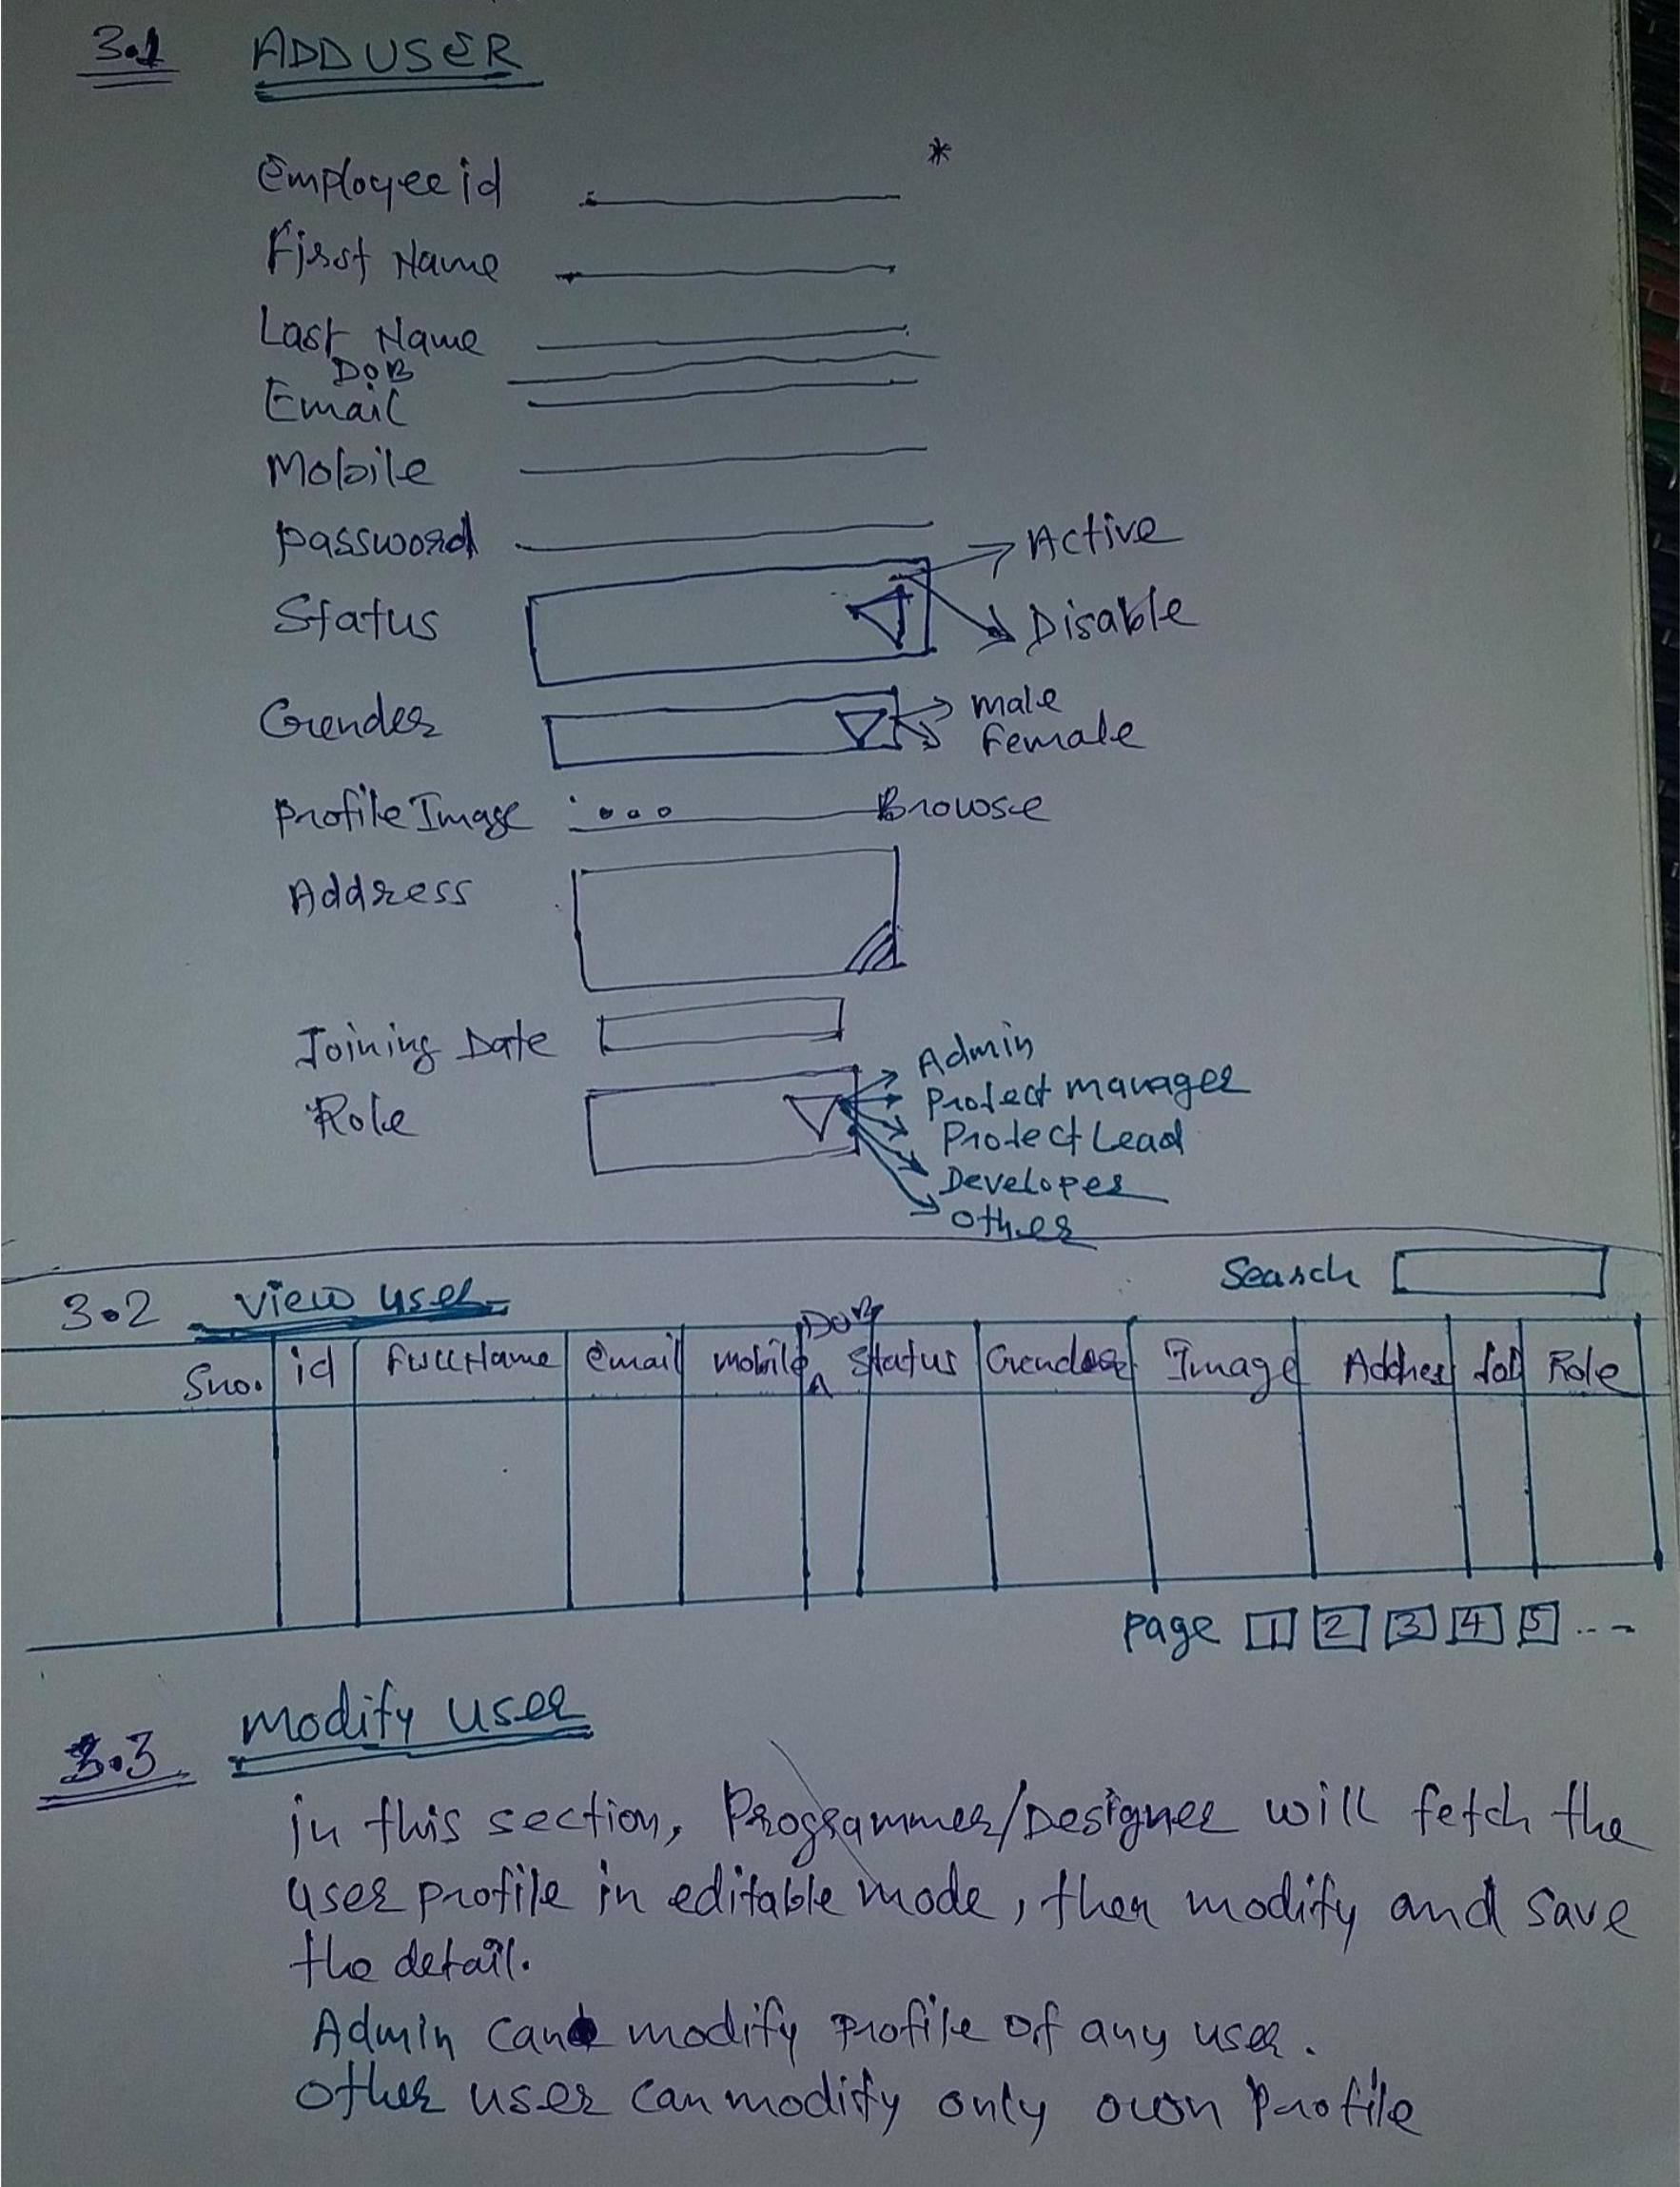 3.1 ADD USER
*
Employee id
First Name
Last Name
DOB
Email
Mobile
Password
Active
Status
Disable
Gender
male
Female
Profile Image Browse
Address
Joining Date
Role
Admin
Project manager
Project Lead
Developer
Other
3.2 View user
Search
Sno. id FullName Email Mobile DOB Status Gender Image Addres Role
Page 1 2 3 4 5 ...
3.3 Modify user
in this section, Programmer/Designer will fetch the
user profile in editable mode, then modify and save
the detail.
Admin can modify profile of any user.
Other user can modify only own Profile